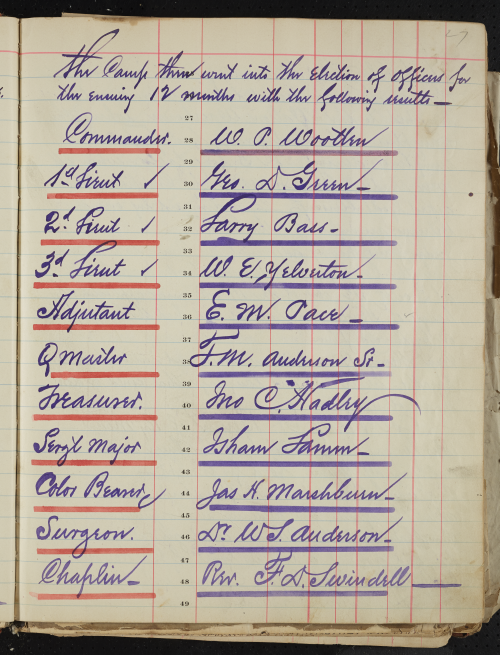 27
The Camp then went into the Election of officers for
the ensuing 12 months with the following results —
27
Commander. W. P. Wootten
28
29
1st Lieut ✓ 30 Geo. D. Green —
31
2d Lieut ✓ 32 Larry Bass —
33
3d Lieut ✓ 34 W. E. Yelverton —
35
Adjutant 36 E. M. Pace —
37
Q Master 38 T. M. Anderson Sr —
39
Treasurer. 40 Jno C. Hadley
41
Sergt Major 42 Isham Lamm —
43
Color Bearer 44 Jas H. Marshburn —
45
Surgeon. 46 Dr W S. Anderson —
47
Chaplin — 48 Rev. F. D. Swindell —
49